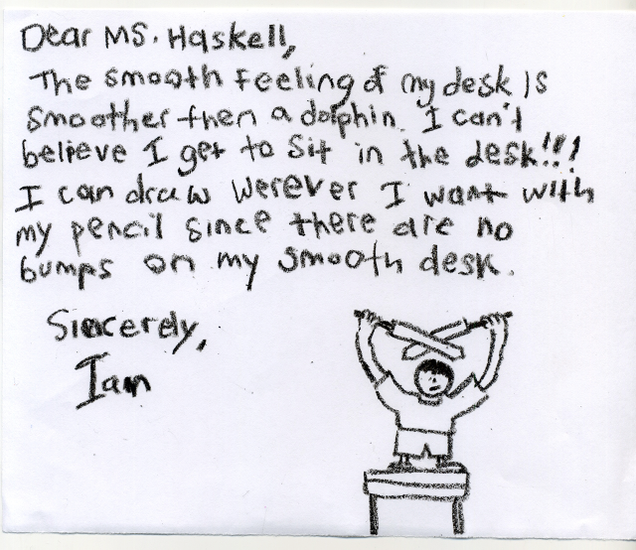 Dear Ms. Haskell,
The smooth feeling of my desk is
smoother then a dolphin. I can't
believe I get to sit in the desk!!!
I can draw werever I want with
my pencil since there are no
bumps on my smooth desk.
Sincerely,
Ian